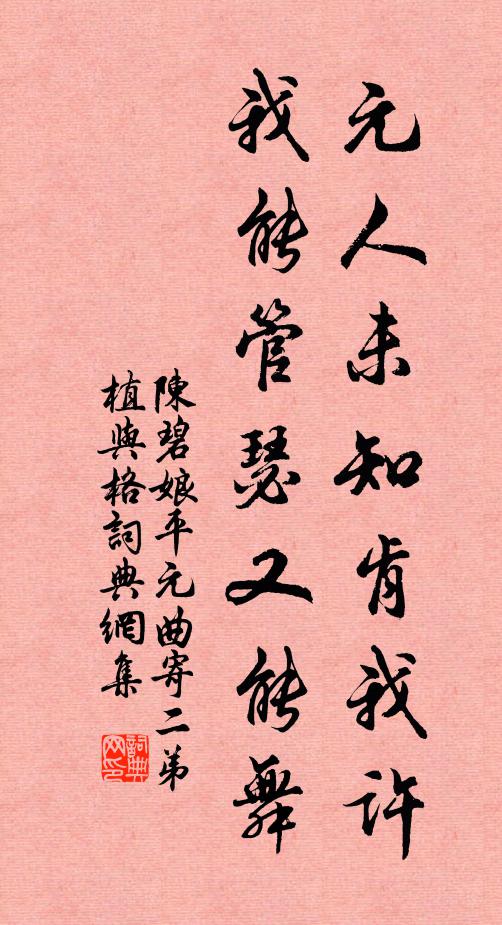 元人未知肯我許
我能管瑟又能舞
陳碧娘平元曲寄二弟
植與格詞典網集
詞典
网印